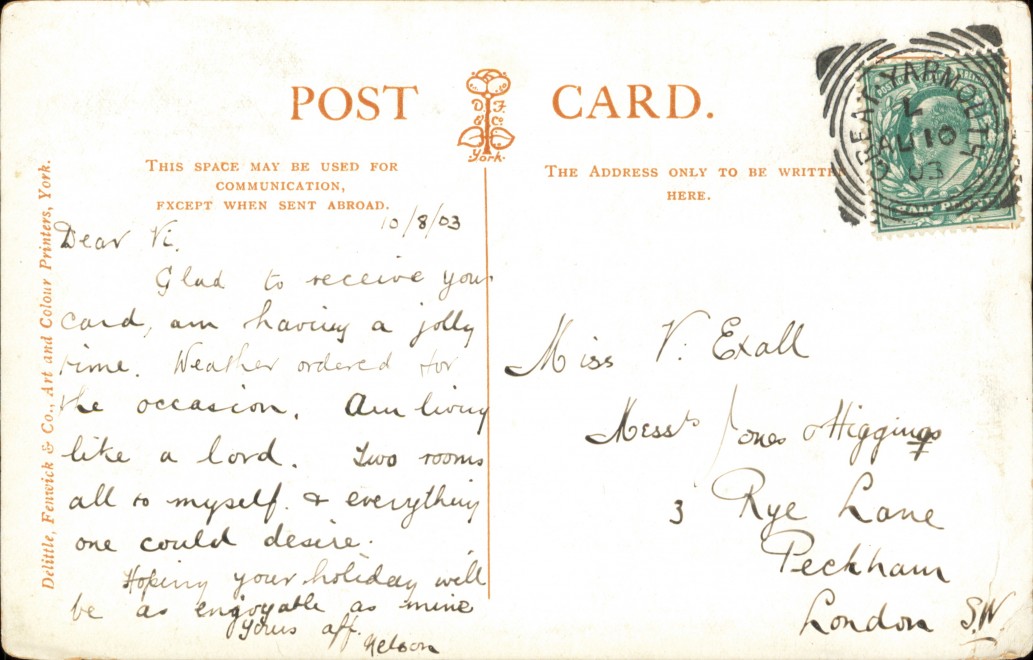 POST CARD.
D F & Co
York.
THIS SPACE MAY BE USED FOR
COMMUNICATION,
EXCEPT WHEN SENT ABROAD.
THE ADDRESS ONLY TO BE WRITTE
HERE.
GREAT YARMOUTH
L
AU 10
03
Delittle, Fenwick & Co., Art and Colour Printers, York.
10/8/03
Dear Vi.
Glad to receive your
card, am having a jolly
time. Weather ordered for
the occasion. Am living
like a lord. Two rooms
all to myself. & everything
one could desire.
Hoping your holiday will
be as enjoyable as mine
Yours aff.
Nelson
Miss V. Exall
Messrs Jones & Higgins
3 Rye Lane
Peckham
London S.W.